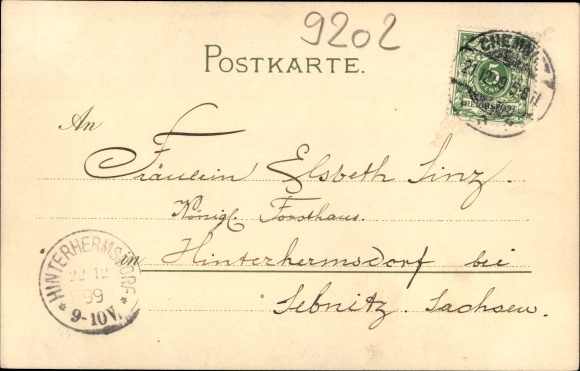 9202
POSTKARTE.
CHEMN
5
An
Fräulein Elsbeth Sinz.
Königl. Forsthaus.
in Hinterhermsdorf bei
Sebnitz. Sachsen.
HINTERHERMSDORF
12
99
* 9-10V. *